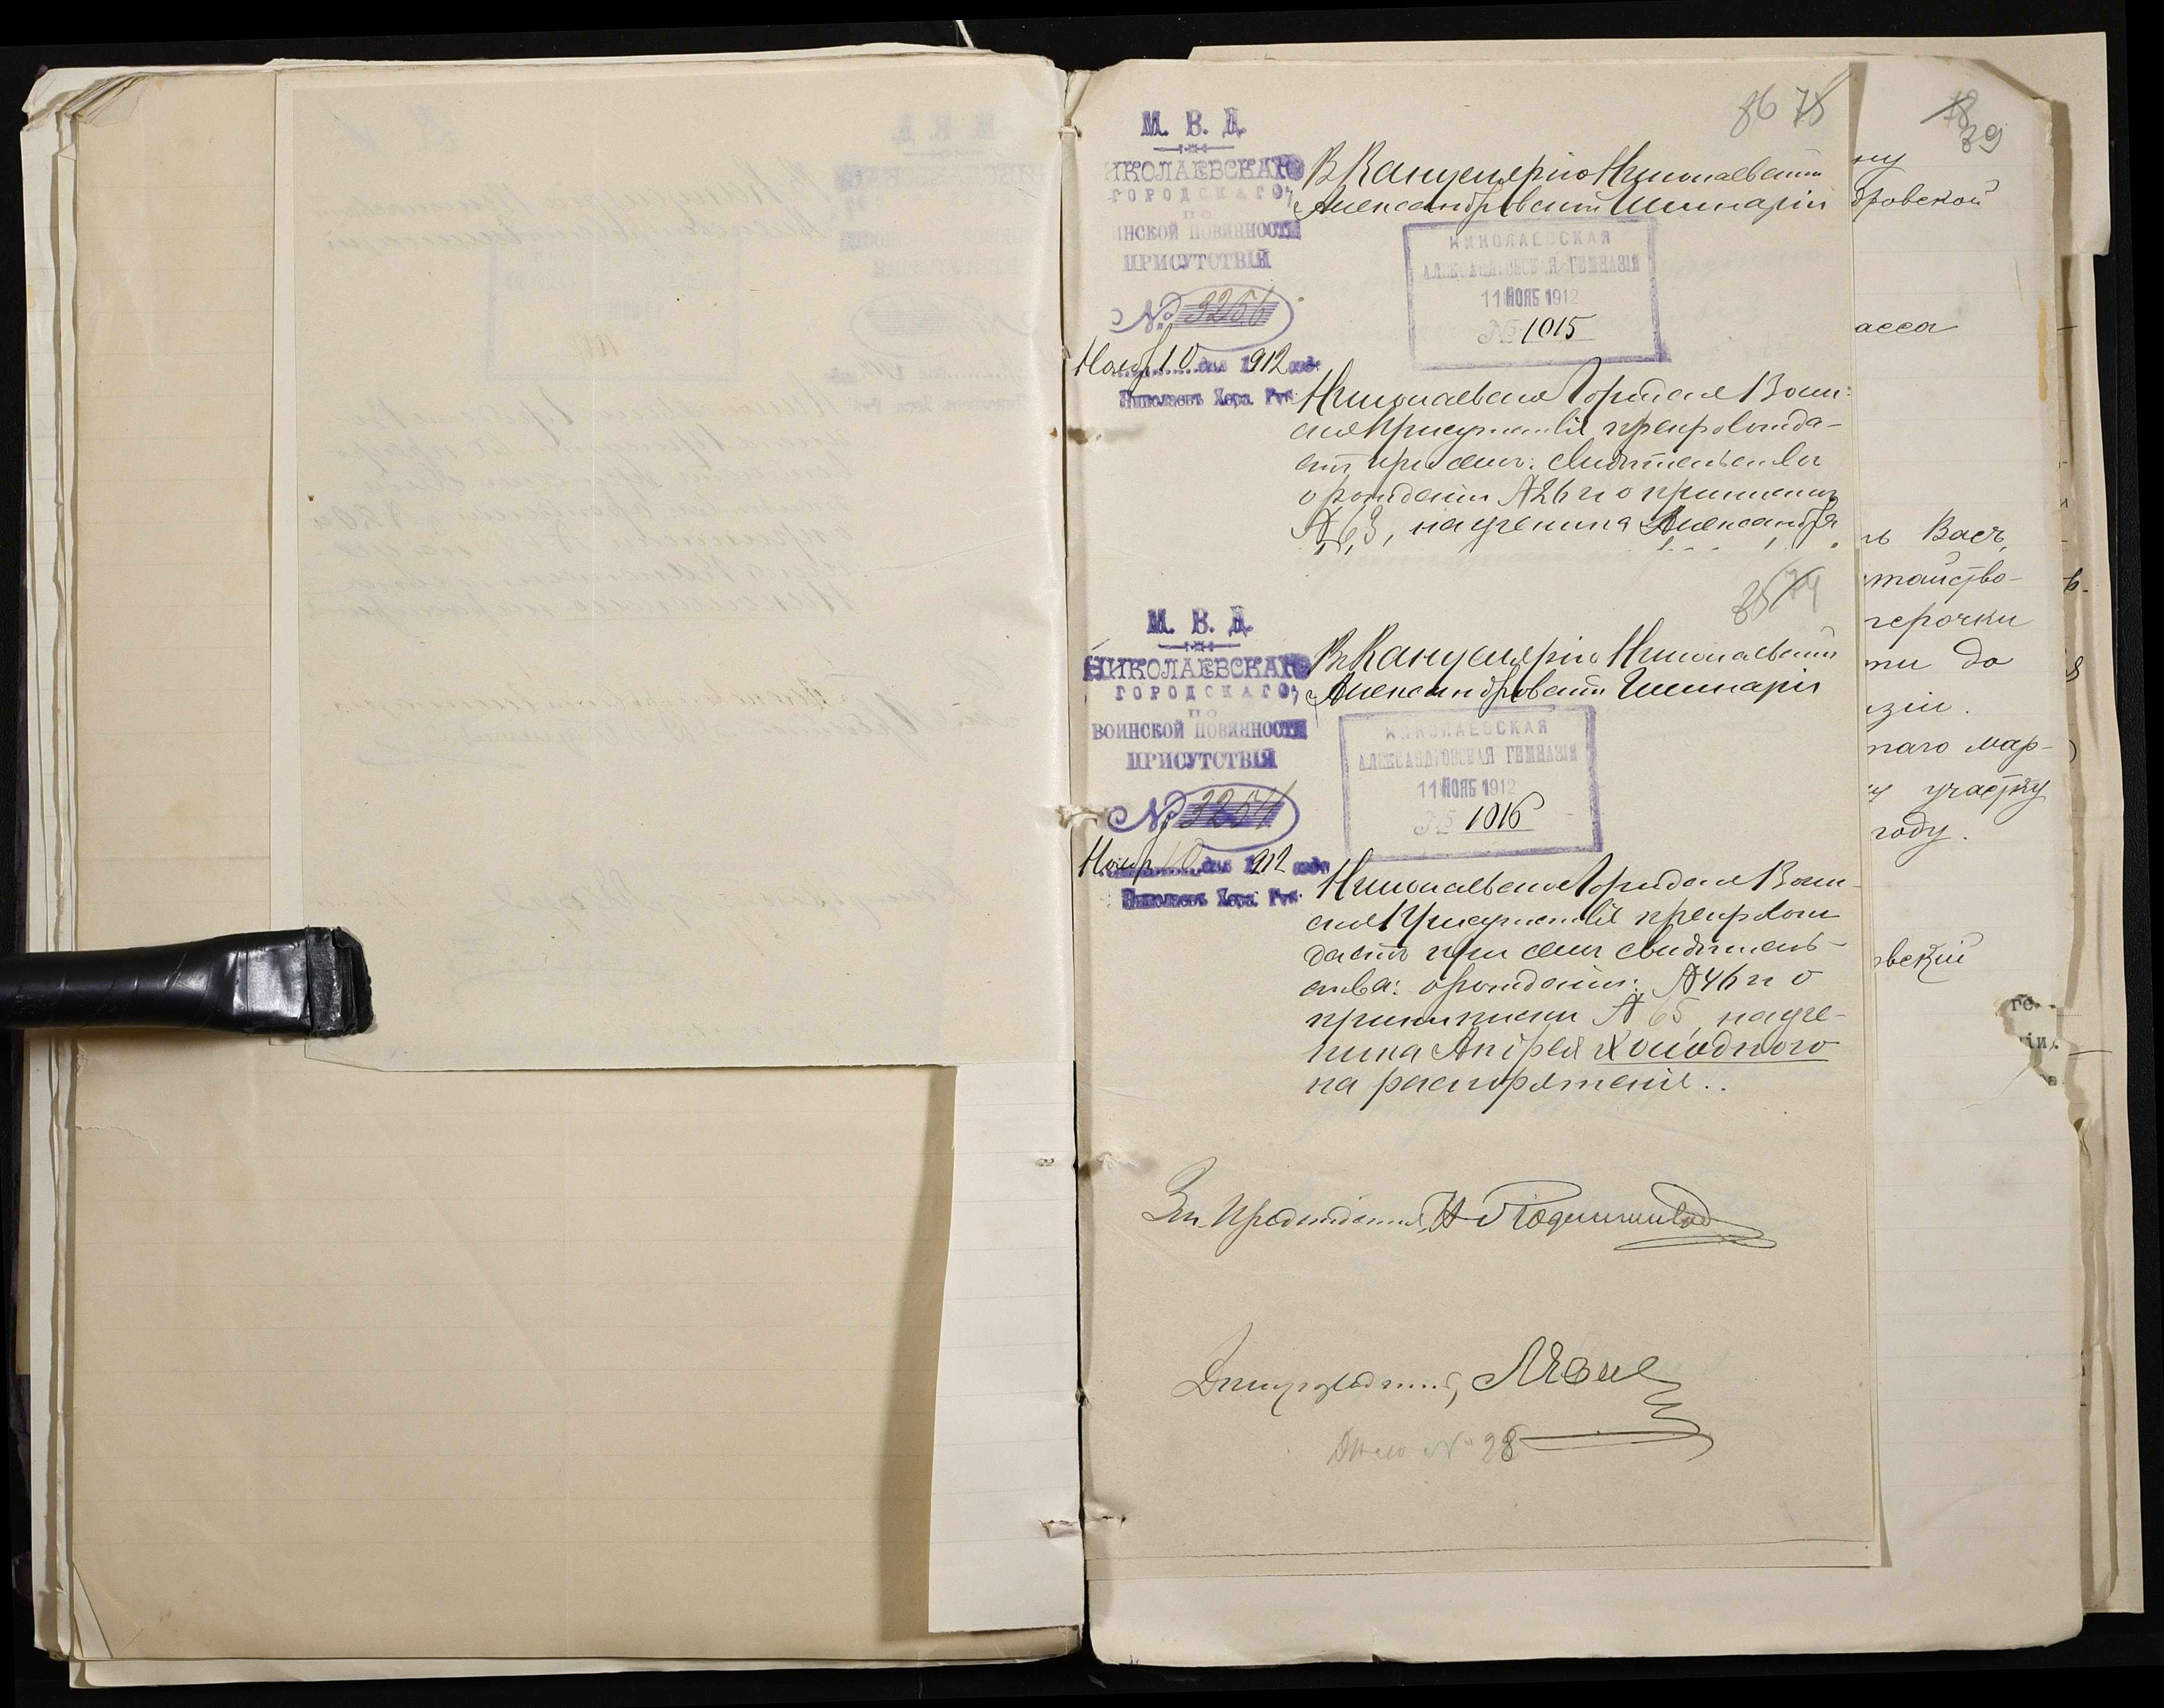 86 75
М. В. Д.
НИКОЛАЕВСКАГО
ГОРОДСКАГО
по
ИНСКОЙ ПОВИННОСТИ
ПРИСУТСТВІЯ
№ 3256
Нояб 10 дня 1912 года
Николаевъ Херс. Губ.
В Канцелярію Николаевской
Александровской Гимназіи
НИКОЛАЕВСКАЯ
АЛЕКСАНДРОВСКАЯ ГИМНАЗІЯ
11 НОЯБ 1912
№ 1015
Николаевское Городское Воин-
ское Присутствіе препровожда-
етъ при семъ: свидѣтельства
о рожденіи № 26 и о приписки
№ 63, на ученика Александра
85 74
М. В. Д.
НИКОЛАЕВСКАГО
ГОРОДСКАГО
по
ВОИНСКОЙ ПОВИННОСТИ
ПРИСУТСТВІЯ
№ 3254
Нояб 10 дня 1912 года
Николаевъ Херс. Губ.
Въ Канцелярію Николаевской
Александровской Гимназіи
НИКОЛАЕВСКАЯ
АЛЕКСАНДРОВСКАЯ ГИМНАЗІЯ
11 НОЯБ 1912
№ 1016
Николаевское Городское Воин-
ское Присутствіе препровож
даетъ при семъ свидѣтель-
ства: о рожденіи: № 46 и о
приписки № 65, на уче-
ника Андрея Холодного
на распоряженіе..
За Предсѣдателя, Н
Дѣлопроизводитель,
Дѣло № 28
78
39
ну
дровской
асса
ль Вас.
тайство-
герочки
ти до
зіи.
таго мар-
участку
году.
вскій